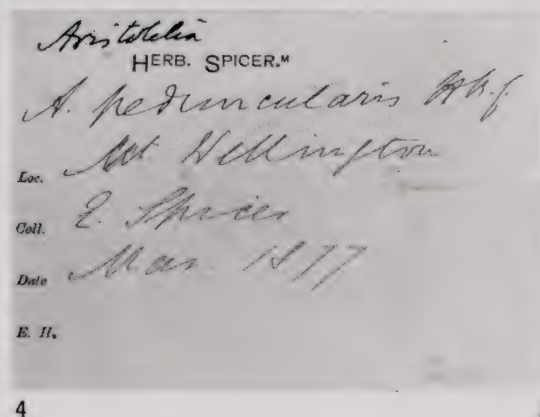 Aristotelia
HERB. SPICER.ᴹ
A. peduncularis Hk.f
Loc. Mt Wellington
Coll. Spicer
Date Mar 1877
E. H.
4